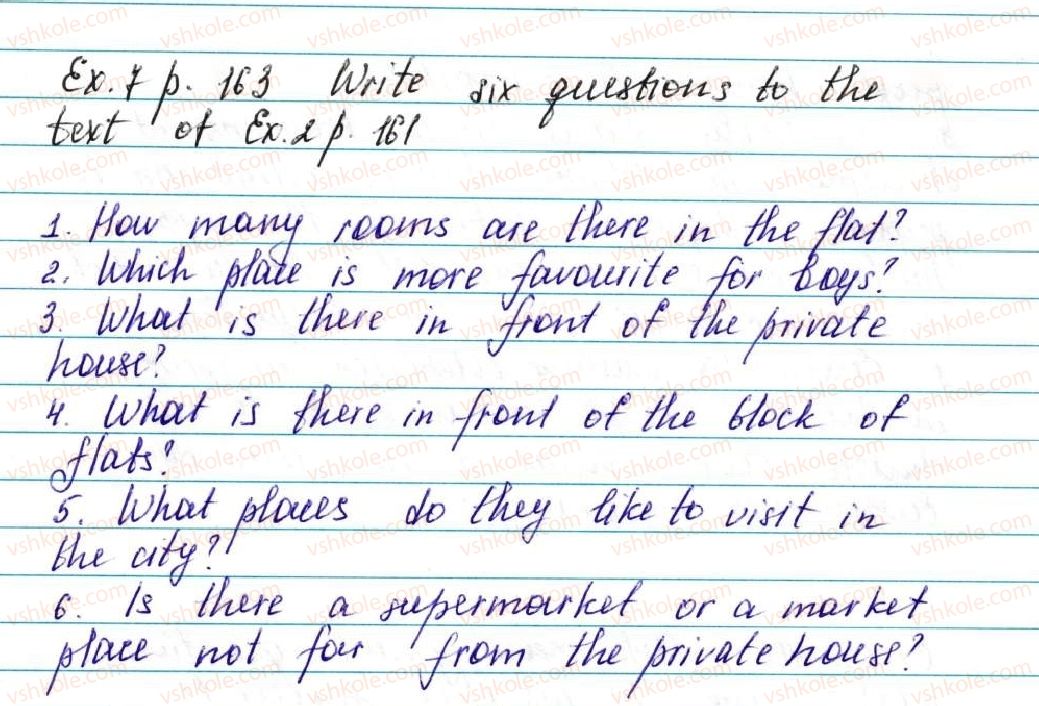 Ex. 7 p. 163 Write six questions to the
text of Ex. 2 p. 161
1. How many rooms are there in the flat?
2. Which place is more favourite for boys?
3. What is there in front of the private
house?
4. What is there in front of the block of
flats?
5. What places do they like to visit in
the city?
6. Is there a supermarket or a market
place not far from the private house?
vshkole.com